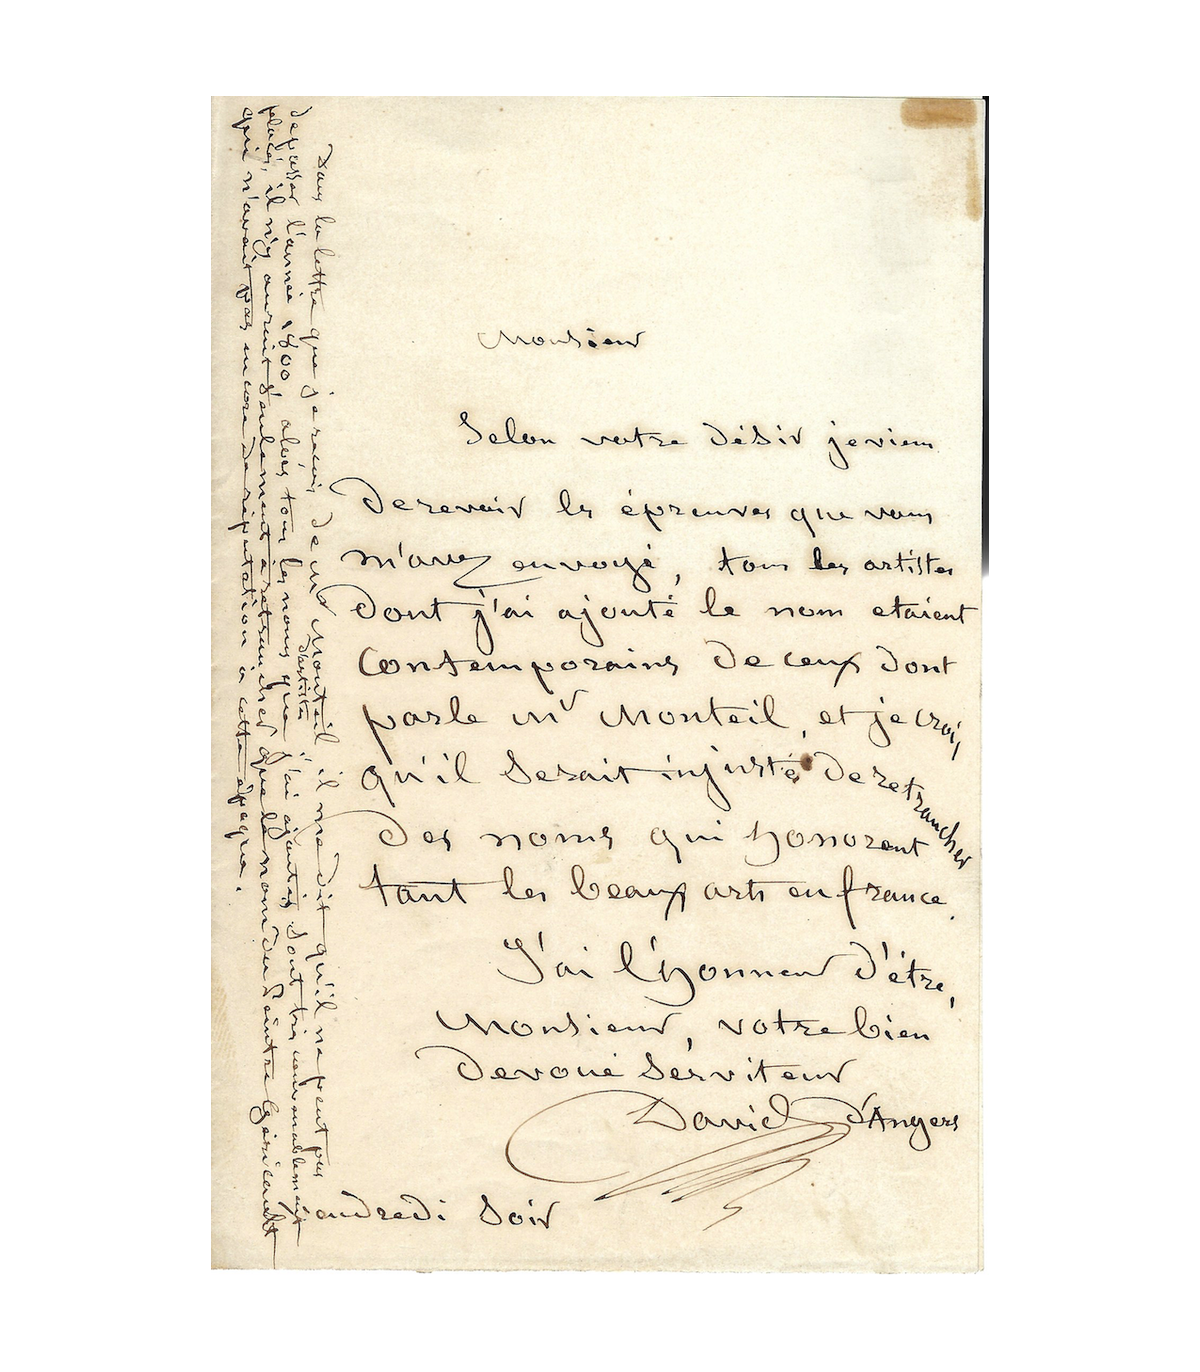 Monsieur
Selon votre désir je viens
de revoir les épreuves que vous
m'avez envoyé, tous les artistes
dont j'ai ajouté le nom etaient
contemporains de ceux dont
parle Mr Monteil, et je crois
qu'il serait injuste de retrancher
des noms qui honorent
tant les beaux arts en france.
J'ai l'honneur d'être,
Monsieur, votre bien
devoué serviteur
David d'Angers
Vendredi soir
Dans la lettre que je reçois de Mr Monteil il me dit qu'il ne peut pas
depasser l'année 1800, alors tous les noms d'artistes que j'ai ajoutés sont très convenablement
placés, il n'y aurait seulement à retrancher que le nom du peintre Géricault
qui n'avait pas encore de réputation à cette époque.